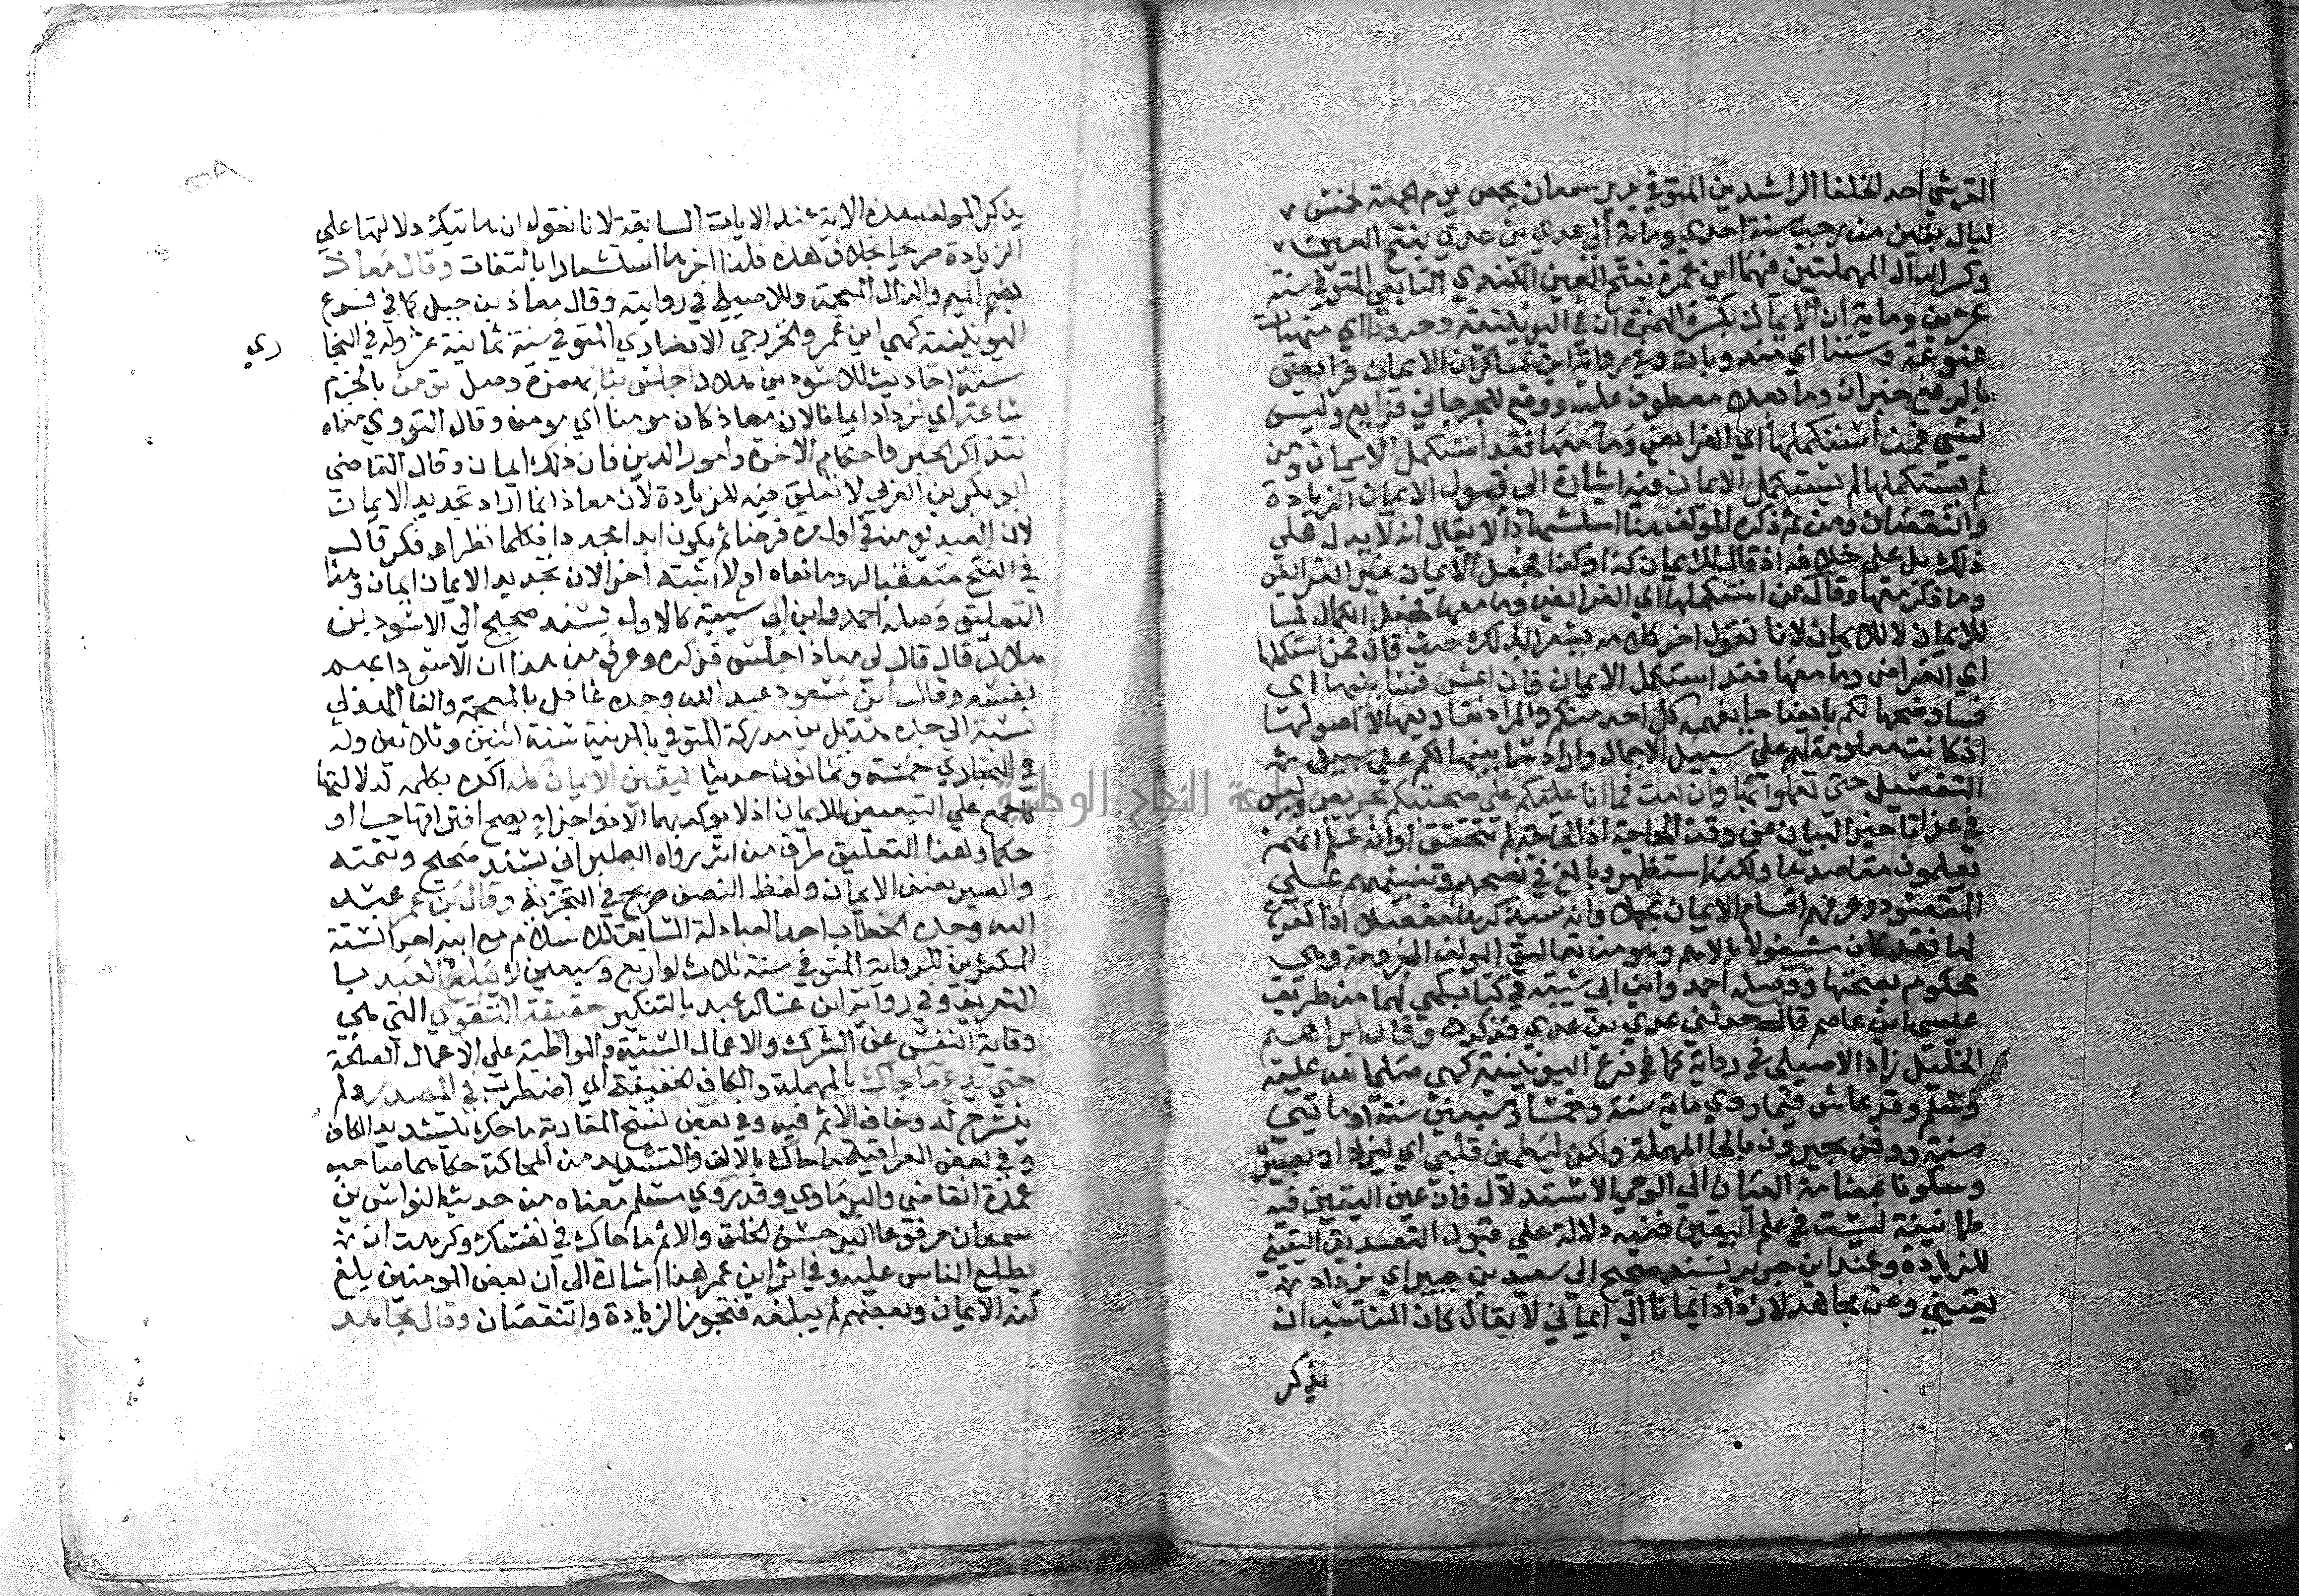 القرشي احد الخلفا الراشدين المتوفي بدير سمعان بحمص يوم الجمعة لخمس
ليال بقين من رجب سنة احدي وماية الي عدي بن عدي بفتح العين
وكسر الدال المهملتين فيهما ابن عميرة بفتح العين الكندي التابعي المتوفي سنة
عشرين وماية ان للايمان بكسر الهمزة ان في اليونينية وحدودا اي منهيات
ممنوعة وسننا اي مندوبات وفي رواية ابن عساكر ان الايمان فرايض
بالرفع خبر ان وما بعده معطوف عليه ووقع للجرجاني فرايع وليس
بشي فمن استكملها اي الفرايض وما معها فقد استكمل الايمان ومن
لم يستكملها لم يستكمل الايمان فيه اشارة الي قبول الايمان الزيادة
والنقصان ومن ثم ذكره المولف هنا استشهادا لا يقال انه لا يدل علي
ذلك بل علي خلافه اذ قال للايمان كذا وكذا فجعل الايمان غير الفرايض
وما ذكر معها وقال من استكملها اي الفرايض وما معها فجعل الكمال لما
للايمان لا للايمان لانا نقول اخر كلامه يشعر بذلك حيث قال فمن استكملها
اي الفرايض وما معها فقد استكمل الايمان فان اعش فسابينها اي
فساوضحها لكم بايضاحا يفهمه كل احد منكم والمراد تفاريعها لا اصولها
اذ كانت معلومة لهم علي سبيل الاجمال واراد سابينها لكم علي سبيل
التفصيل حتي تعملوا بها وان امت فما انا علي صحبتكم بحريص وليس
في هذا تاخير البيان عن وقت الحاجة اذ الحاجة لم تتحقق او انه علم انهم
يعلمون مقاصدها ولكنه استظهر وبالغ في نصحهم وتنبيههم علي
المقصود وعرفهم اقسام الايمان مجملا وانه سيذكرها مفصلا اذا تفرغ
لها فقد كان مشغولا بالاهم وهو من تعاليق المولف المجزومة وهي
محكوم بصحتها ووصله احمد وابن ابي شيبة في كتاب لهما من طريق
عيسي ابن عاصم قال حدثني عدي بن عدي فذكره وقال ابراهيم
الخليل زاد الاصيلي في رواية كما في فرع اليونينية كهي صلي الله عليه
وسلم وقد عاش فيما روي ماية سنة وخمسا وسبعين سنة او مايتي
سنة ودفن بحبرون بالحا المهملة ولكن ليطمئن قلبي اي ليزداد بصيرة
وسكونا بمضامة العيان الي الوحي والاستدلال فان عين اليقين فيه
طمانينة ليست في علم اليقين ففيه دلالة علي قبول التصديق اليقيني
للزيادة وعند ابن جرير بسند صحيح الي سعيد بن جبير اي يزداد
يقيني وعن مجاهد لازداد ايمانا الي ايماني لا يقال كان المناسب ان
يذكر
يذكر المولف هذه الاية عند الايات السابقة لانا نقول ان هاتيك دلالتها علي
الزيادة صريحا بخلاف هذه فلذا اخرها استشعارا بالتفات وقال معاذ
بضم الميم والذال المعجمة وللاصيلي في روايته وقال معاذ بن جبل كما في فرع
اليونينية كهي ابن عمرو الخزرجي الانصاري المتوفي سنة ثمانية عشر وله في البخا
ري
ستة احاديث للاسود بن هلال اجلس بنا بهمزة وصل نؤمن بالجزم
ساعة اي نزداد ايمانا لان معاذ كان مومنا اي مومن وقال النووي معناه
نتذاكر الخير واحكام الاخرة وامور الدين فان ذلك ايمان وقال القاضي
ابو بكر بن العربي لا تعلق فيه للزيادة لان معاذ انما اراد تجديد الايمان
لان العبد يومن في اول مرة فرضا ثم يكون ابدا مجددا فكلما نظر او فكر قال
في الفتح متعقبا له وما نفاه اولا اثبته اخر الان تجديد الايمان ايمان وهذا
التعليق وصله احمد وابن ابي شيبة كالاول بسند صحيح الي الاسود بن
هلال قال قال لي معاذ اجلس فذكره وعرف من هذا ان الاسود
نفسه وقال ابن مسعود عبد الله وجده غافل بالمعجمة والفا الهذلي
نسبة الي جده هذيل بن مدركة المتوفي بالمدينة سنة اثنين وثلاثين وله
في البخاري خمسة وثمانون حديثا اليقين الايمان كله اكده بكله لدلالتها
كاجمع علي التبعيض للايمان اذ لا يوكد بهما الا ذو اجزاء يصح افتراقها حسا او
حكما وهذا التعليق طرف من اثر رواه الطبراني بسند صحيح وتتمته
والصبر نصف الايمان ولفظ النصف صريح في التجزئة وقال بن عمر عبد
الله وجده الخطاب احد العبادلة السابقة للاسلام مع ابيه احد الستة
المكثرين للرواية المتوفي سنة ثلاث او اربع وسبعين لا يبلغ العبد با
لتعريف وفي رواية ابن عساكر عبد بالتنكير حقيقة التقوي التي هي
وقاية النفس عن الشرك والاعمال السيئة والمواظبة علي الاعمال الصالحة
حتي يدع ما حاك بالمهملة والكاف الخفيفة اي اضطرب في الصدر ولم
ينشرح له وخاف الاثم فيه وفي بعض نسخ المغاربة ما حك بتشديد الكاف
وفي بعض العراقية ما حاك بالالف والتشديد من المحاكة حكاهما صاحب
عمدة القاضي والبرماوي وقد روي مسلم معناه من حديث النواس بن
سمعان مرفوعا البر حسن الخلق والاثم ما حاك في نفسك وكرهت ان
يطلع الناس عليه وفي اثر ابن عمر هذا اشارة الي ان بعض المومنين يبلغ
كنه الايمان وبعضهم لم يبلغه فتجوز الزيادة والنقصان وقال مجاهد